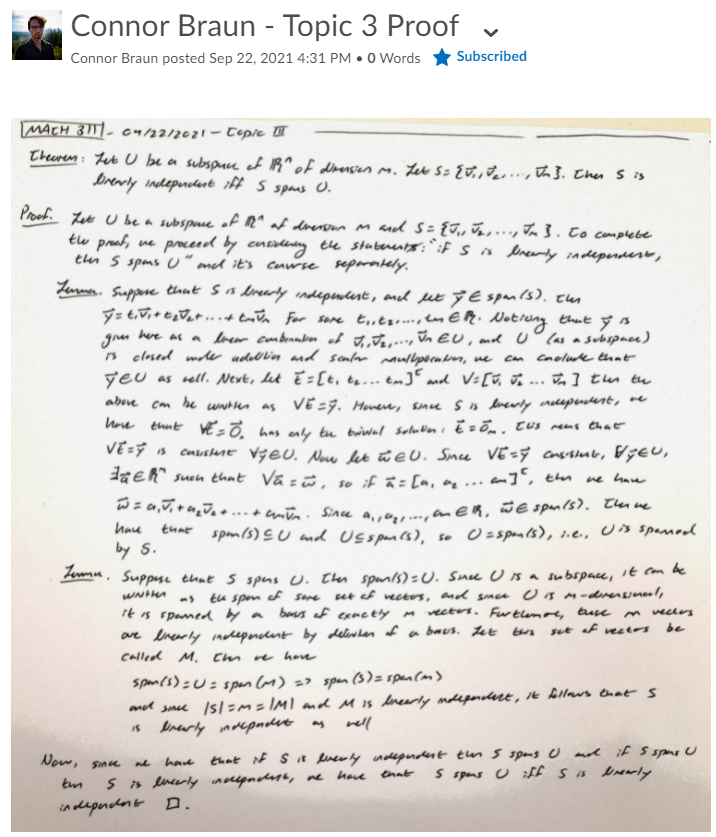 Connor Braun - Topic 3 Proof
Connor Braun posted Sep 22, 2021 4:31 PM • 0 Words Subscribed
MACH 311 - 09/22/2021 - Topic III
Theorem: Let U be a subspace of ℝⁿ of dimension m. Let S = {v⃗₁, v⃗₂, ..., v⃗ₘ}. Then S is
linearly independent iff S spans U.
Proof. Let U be a subspace of ℝⁿ of dimension m and S = {v⃗₁, v⃗₂, ..., v⃗ₘ}. To complete
the proof, we proceed by considering the statements: "if S is linearly independent,
then S spans U" and it's converse separately.
Lemma. Suppose that S is linearly independent, and let y⃗ ∈ span(S). Then
y⃗ = t₁v⃗₁ + t₂v⃗₂ + ... + tₘv⃗ₘ for some t₁, t₂, ..., tₘ ∈ ℝ. Noticing that y⃗ is
given here as a linear combination of v⃗₁, v⃗₂, ..., v⃗ₘ ∈ U, and U (as a subspace)
is closed under addition and scalar multiplication, we can conclude that
y⃗ ∈ U as well. Next, let t⃗ = [t₁ t₂ ... tₘ]ᵗ and V = [v⃗₁ v⃗₂ ... v⃗ₘ] then the
above can be written as Vt⃗ = y⃗. However, since S is linearly independent, we
have that Vt⃗ = 0⃗ₙ has only the trivial solution: t⃗ = 0⃗ₘ. This means that
Vt⃗ = y⃗ is consistent ∀y⃗ ∈ U. Now let w⃗ ∈ U. Since Vt⃗ = y⃗ consistent, ∀y⃗ ∈ U,
∃a⃗ ∈ ℝᵐ such that Va⃗ = w⃗, so if a⃗ = [a₁ a₂ ... aₘ]ᵗ, then we have
w⃗ = a₁v⃗₁ + a₂v⃗₂ + ... + aₘv⃗ₘ. Since a₁, a₂, ..., aₘ ∈ ℝ, w⃗ ∈ span(S). Then we
have that span(S) ⊆ U and U ⊆ span(S), so U = span(S), i.e., U is spanned
by S.
Lemma. Suppose that S spans U. Then span(S) = U. Since U is a subspace, it can be
written as the span of some set of vectors, and since U is m-dimensional,
it is spanned by a basis of exactly m vectors. Furthermore, these m vectors
are linearly independent by definition of a basis. Let this set of vectors be
called M. Then we have
span(S) = U = span(M) => span(S) = span(M)
and since |S| = m = |M| and M is linearly independent, it follows that S
is linearly independent as well
Now, since we have that if S is linearly independent then S spans U and if S spans U
then S is linearly independent, we have that S spans U iff S is linearly
independent □.